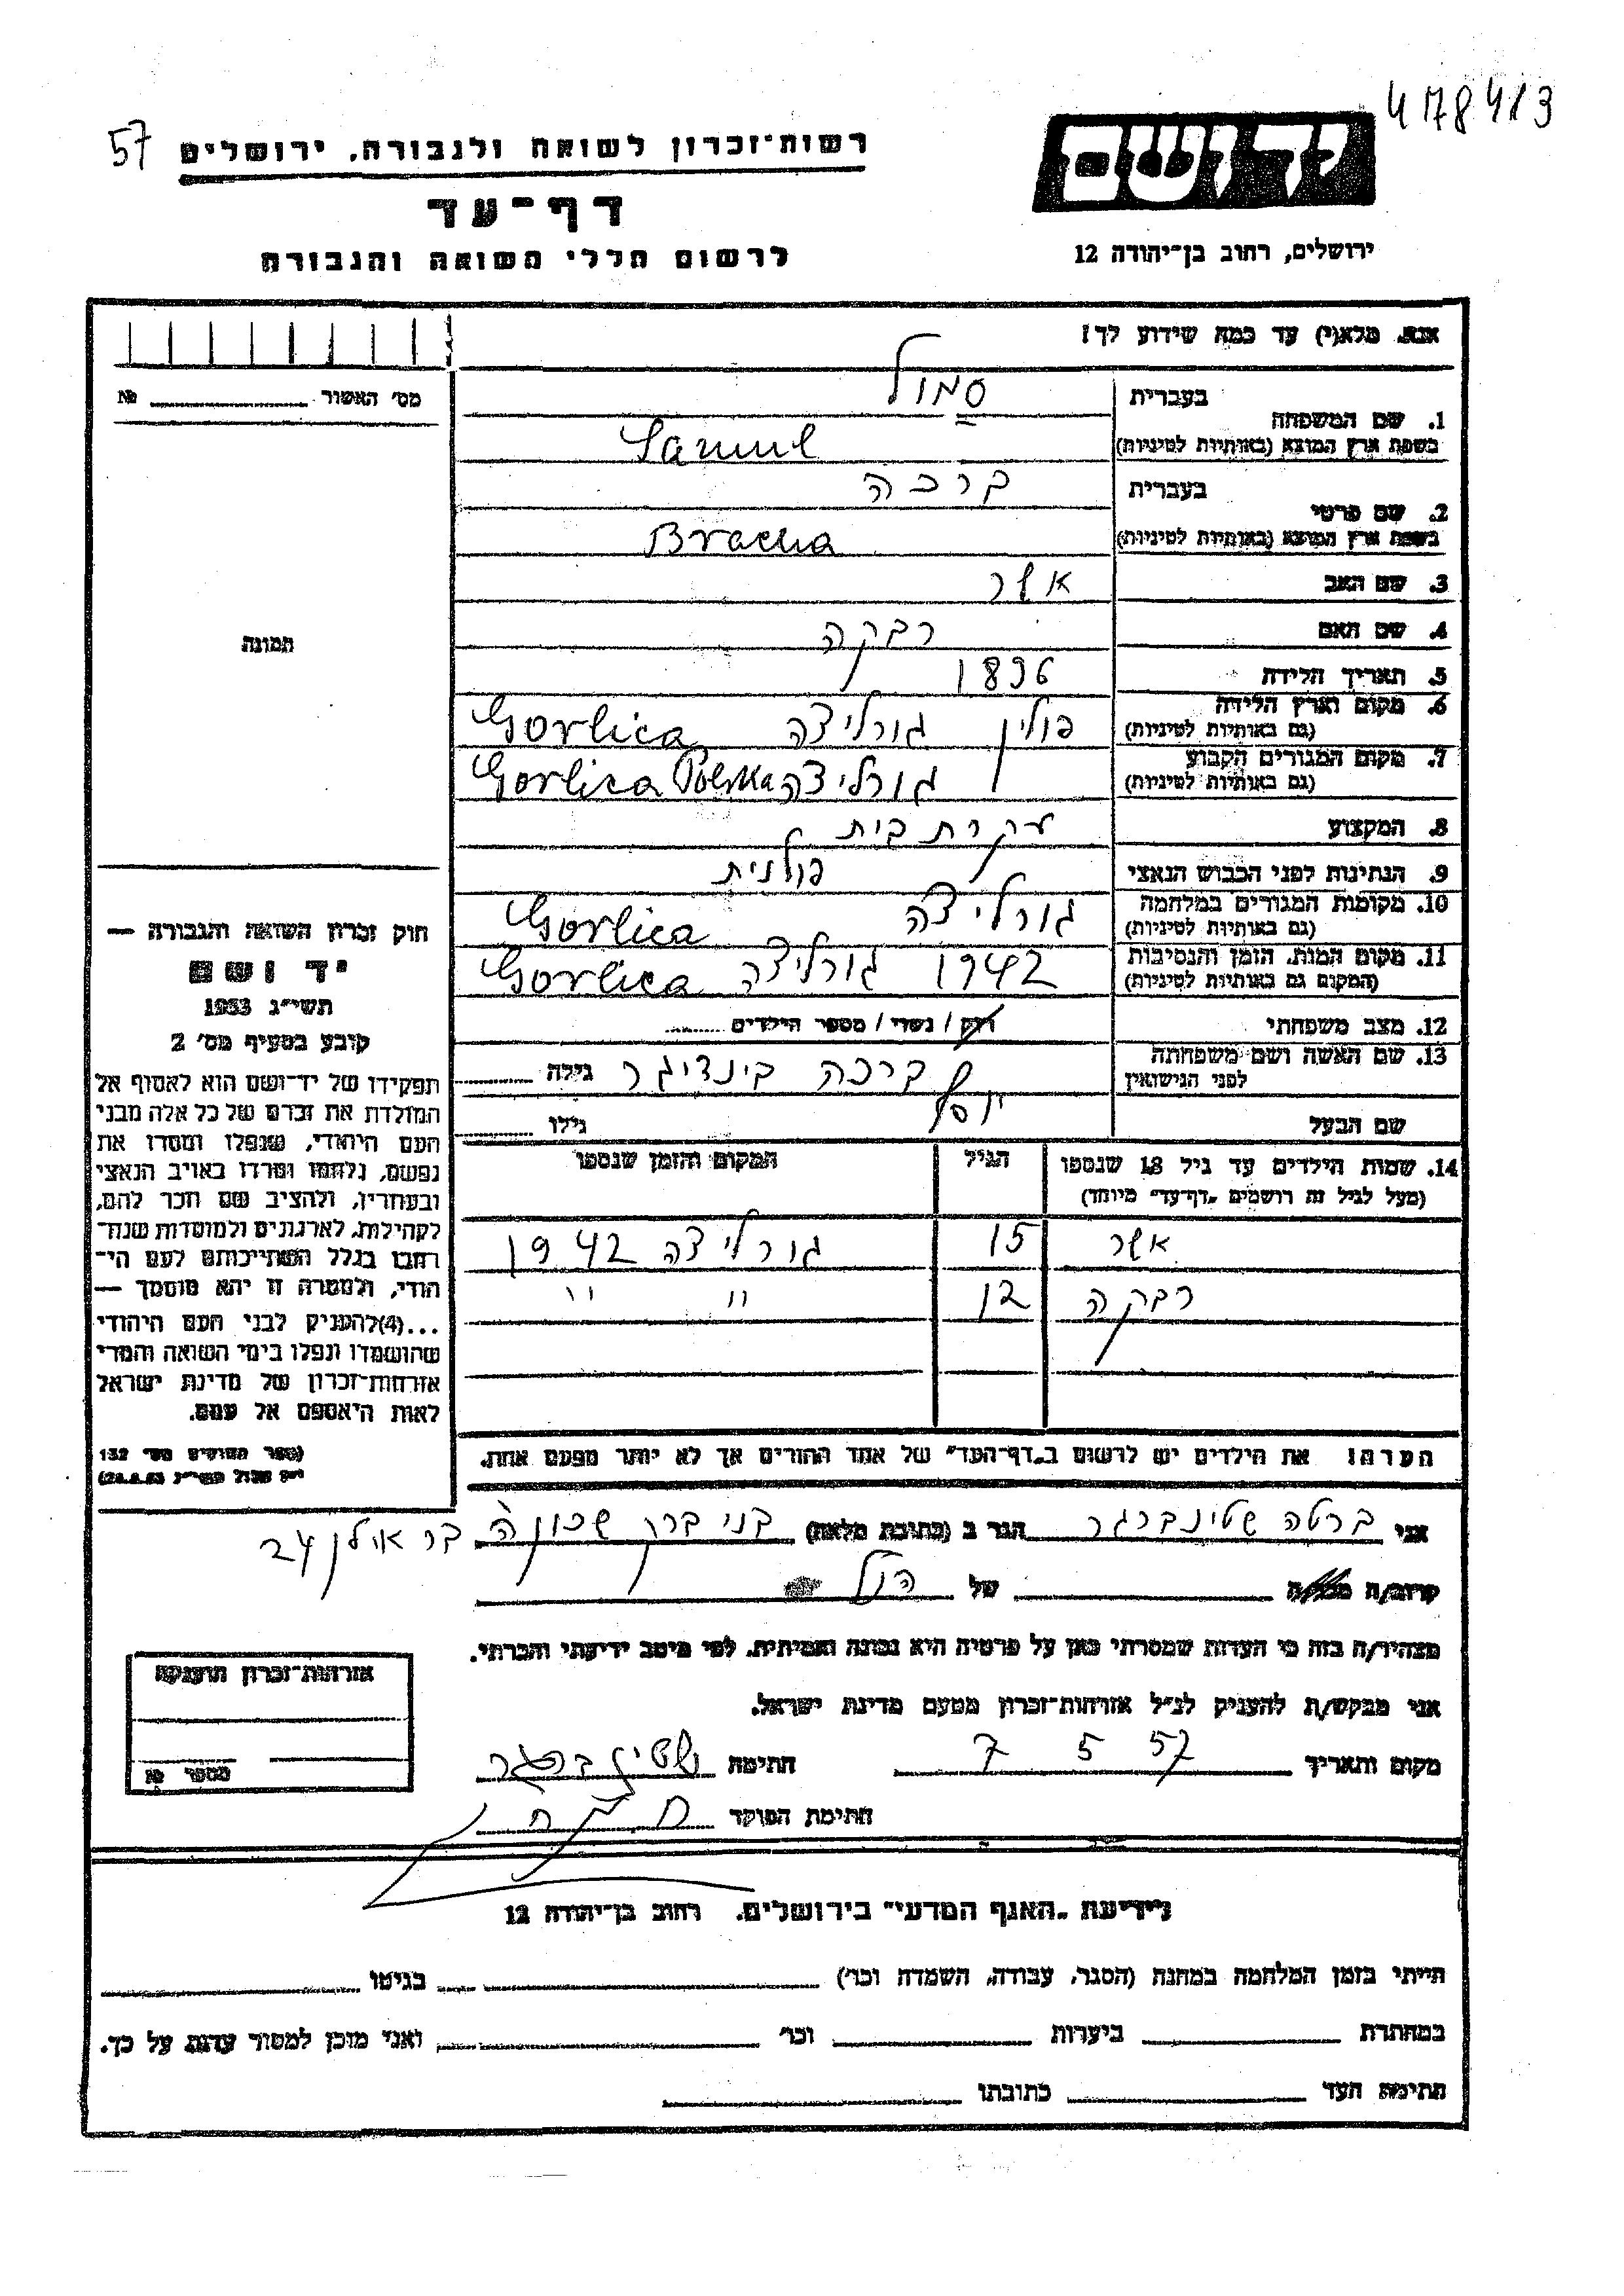 478413
57
רשות־זכרון לשואה ולגבורה, ירושלים
יד ושם
דף־עד
לרשום חללי השואה והגבורה
ירושלים, רחוב בן־יהודה 12
אנא, מלא(י) עד כמה שידוע לך!
מס׳ האשור № 
1. שם המשפחה
בעברית סמול
בשפת ארץ המוצא (באותיות לטיניות) Samul
2. שם פרטי
בעברית ברכה
בשפת ארץ המוצא (באותיות לטיניות) Bracha
3. שם האב אשר
4. שם האם רבקה
5. תאריך הלידה 1896
6. מקום וארץ הלידה (גם באותיות לטיניות) פולין גורליצה Gorlica
7. מקום המגורים הקבוע (גם באותיות לטיניות) גורליצה Gorlica Polska
8. המקצוע עקרת בית
9. הנתינות לפני הכבוש הנאצי פולנית
10. מקומות המגורים במלחמה (גם באותיות לטיניות) גורליצה Gorlica
11. מקום המות, הזמן והנסיבות (המקום גם באותיות לטיניות) 1942 גורליצה Gorlica
12. מצב משפחתי רווק / נשוי / מספר הילדים
13. שם האשה ושם משפחתה לפני הנישואין ברכה בינדיגר גילה
שם הבעל יוסף גילו
14. שמות הילדים עד גיל 18 שנספו הגיל המקום והזמן שנספו
(מעל לגיל זה רושמים „דף־עד״ מיוחד)
אשר 15 גורליצה 1942
רבקה 12 " "
הערה: את הילדים יש לרשום ב„דף־העד״ של אחד ההורים אך לא יותר מפעם אחת.
תמונה
חוק זכרון השואה והגבורה —
יד ושם
תשי״ג 1953
קובע בסעיף מס׳ 2
תפקידו של יד־ושם הוא לאסוף אל
המולדת את זכרם של כל אלה מבני
העם היהודי, שנפלו ומסרו את
נפשם, נלחמו ומרדו באויב הנאצי
ובעוזריו, ולהציב שם וזכר להם,
לקהילות, לארגונים ולמוסדות שנח־
רבו בגלל השתייכותם לעם הי־
הודי, ולמטרה זו יהא מוסמך —
...(4) להעניק לבני העם היהודי
שהושמדו ונפלו בימי השואה והמרי
אזרחות־זכרון של מדינת ישראל
לאות היאספם אל עמם.
(ספר החוקים מס׳ 132
אני ברטה שטינברגר הגר ב (כתובת מלאה) בני ברק שכונה בר אילן 24
קרוב/ה מכר/ה של הנ"ל
מצהיר/ה בזה כי העדות שמסרתי כאן על פרטיה היא נכונה ואמיתית, לפי מיטב ידיעתי והכרתי.
אני מבקש/ת להעניק לנ״ל אזרחות־זכרון מטעם מדינת ישראל.
מקום ותאריך 7 5 57 חתימה שטינברגר
חתימת הפוקד
אזרחות־זכרון הוענקה
מספר №
לידיעת „האגף המדעי״ בירושלים, רחוב בן־יהודה 12
הייתי בזמן המלחמה במחנה (הסגר, עבודה, השמדה וכו׳) בגיטו
במחתרת ביערות וכו׳ ואני מוכן למסור עדות על כך.
חתימת העד כתובתו